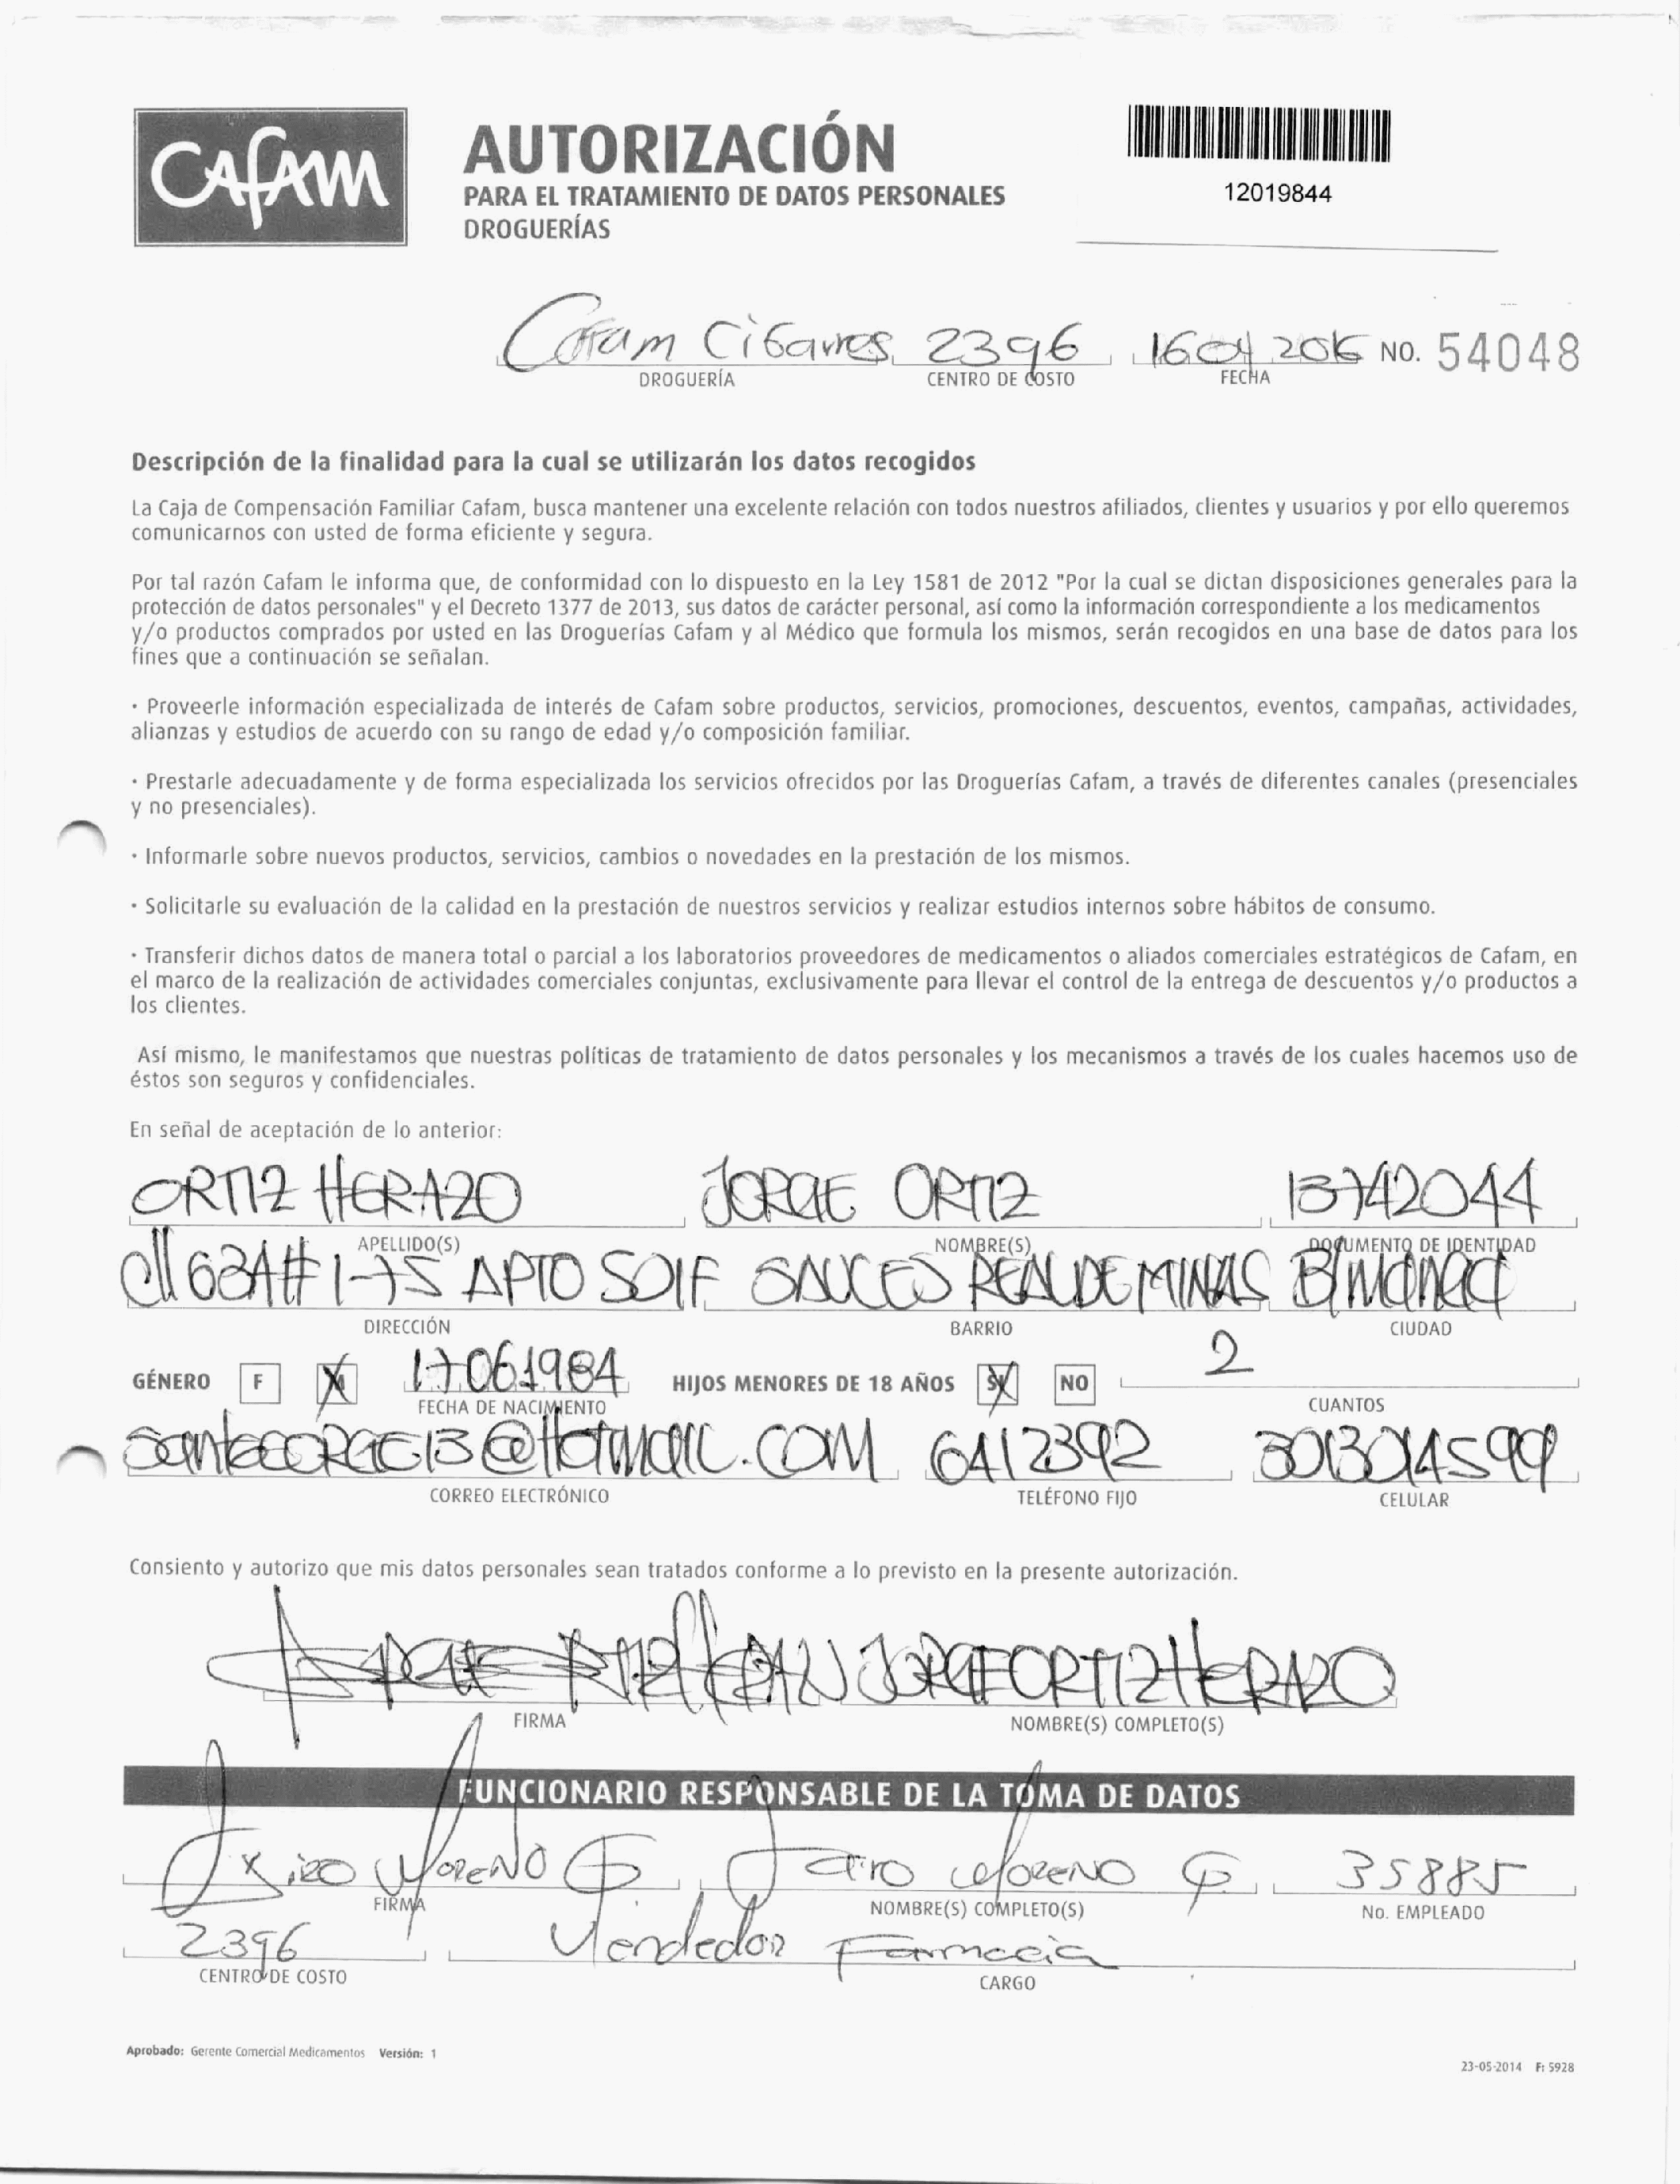 CAFAM
AUTORIZACIÓN
PARA EL TRATAMIENTO DE DATOS PERSONALES
DROGUERÍAS
12019844
2396 NO. 54048
DROGUERÍA CENTRO DE COSTO FECHA
Descripción de la finalidad para la cual se utilizarán los datos recogidos
La Caja de Compensación Familiar Cafam, busca mantener una excelente relación con todos nuestros afiliados, clientes y usuarios y por ello queremos
comunicarnos con usted de forma eficiente y segura.
Por tal razón Cafam le informa que, de conformidad con lo dispuesto en la Ley 1581 de 2012 "Por la cual se dictan disposiciones generales para la
protección de datos personales" y el Decreto 1377 de 2013, sus datos de carácter personal, así como la información correspondiente a los medicamentos
y/o productos comprados por usted en las Droguerías Cafam y al Médico que formula los mismos, serán recogidos en una base de datos para los
fines que a continuación se señalan.
· Proveerle información especializada de interés de Cafam sobre productos, servicios, promociones, descuentos, eventos, campañas, actividades,
alianzas y estudios de acuerdo con su rango de edad y/o composición familiar.
· Prestarle adecuadamente y de forma especializada los servicios ofrecidos por las Droguerías Cafam, a través de diferentes canales (presenciales
y no presenciales).
· Informarle sobre nuevos productos, servicios, cambios o novedades en la prestación de los mismos.
· Solicitarle su evaluación de la calidad en la prestación de nuestros servicios y realizar estudios internos sobre hábitos de consumo.
· Transferir dichos datos de manera total o parcial a los laboratorios proveedores de medicamentos o aliados comerciales estratégicos de Cafam, en
el marco de la realización de actividades comerciales conjuntas, exclusivamente para llevar el control de la entrega de descuentos y/o productos a
los clientes.
Así mismo, le manifestamos que nuestras políticas de tratamiento de datos personales y los mecanismos a través de los cuales hacemos uso de
éstos son seguros y confidenciales.
En señal de aceptación de lo anterior:
ORTIZ HERAZO JORGE ORTIZ 13742044
APELLIDO(S) NOMBRE(S) DOCUMENTO DE IDENTIDAD
APTO REAL DE MINAS
DIRECCIÓN BARRIO CIUDAD
GÉNERO F M 17061984 HIJOS MENORES DE 18 AÑOS SI NO 2
FECHA DE NACIMIENTO CUANTOS
6412392 3013014599
CORREO ELECTRÓNICO TELÉFONO FIJO CELULAR
Consiento y autorizo que mis datos personales sean tratados conforme a lo previsto en la presente autorización.
JORGE ORTIZ HERAZO
FIRMA NOMBRE(S) COMPLETO(S)
FUNCIONARIO RESPONSABLE DE LA TOMA DE DATOS
Jairo Moreno G Jairo Moreno G 35885
FIRMA NOMBRE(S) COMPLETO(S) No. EMPLEADO
2396 Vendedor Farmacia
CENTRO DE COSTO CARGO
Aprobado: Gerente Comercial Medicamentos Versión: 1
23-05-2014 F: 5928